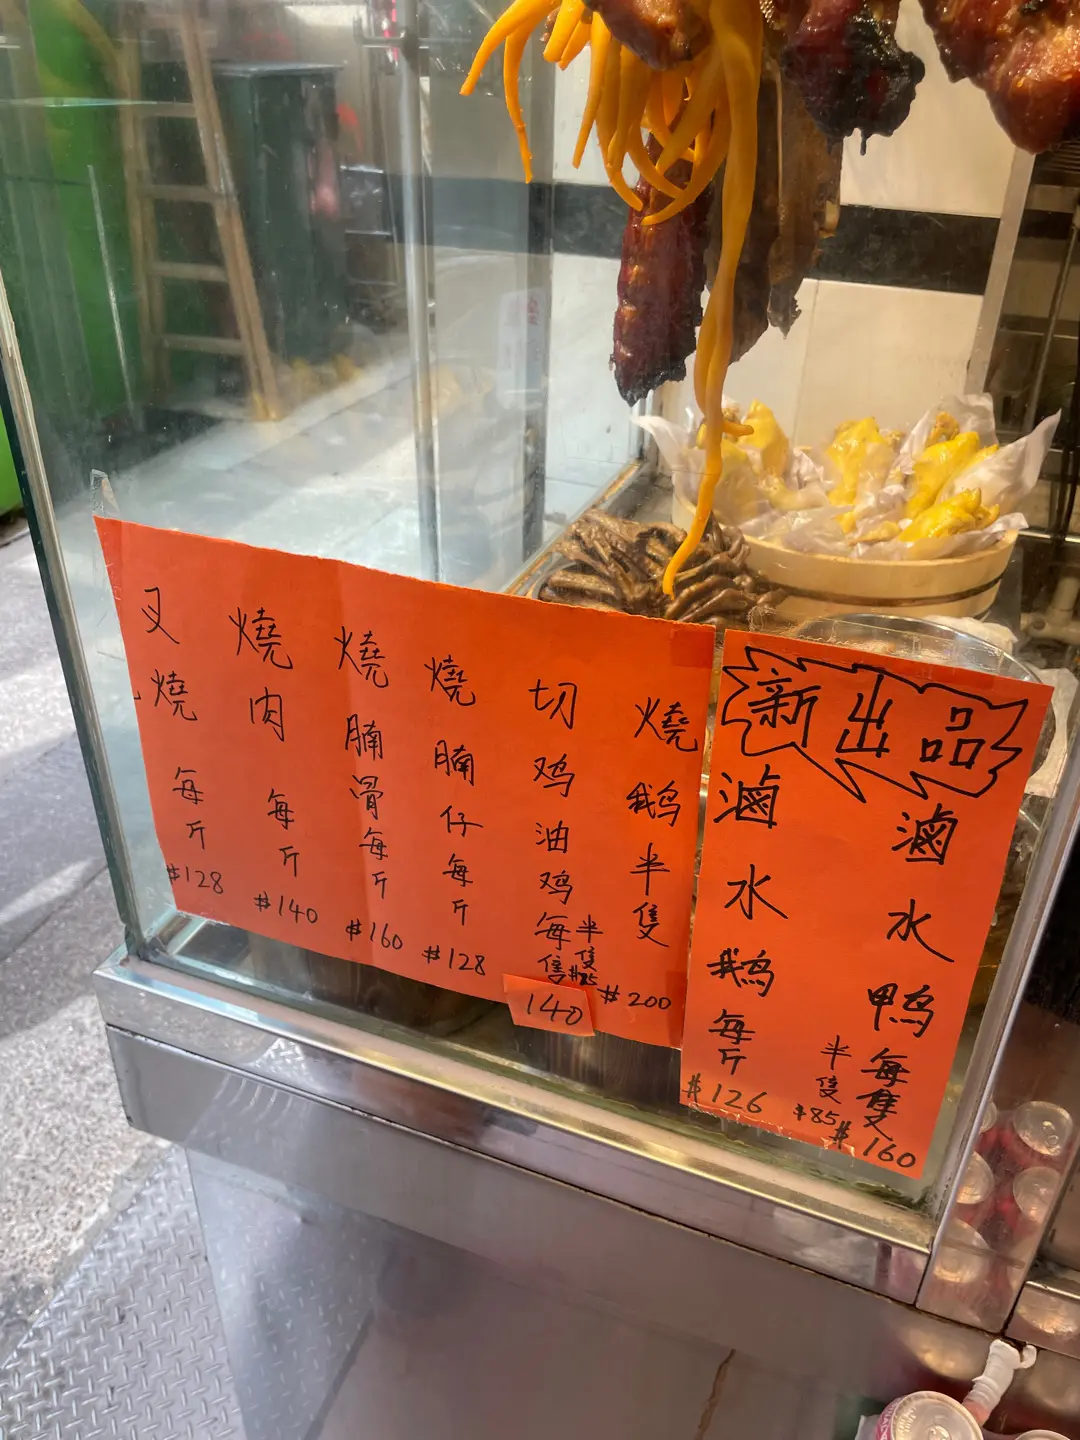 叉燒每斤$128
燒肉每斤$140
燒腩骨每斤$160
燒腩仔每斤$128
切鸡油鸡每隻140
半隻$85
燒鹅半隻$200
新出品
滷水鹅每斤$126
滷水鸭每隻$160
半隻$85